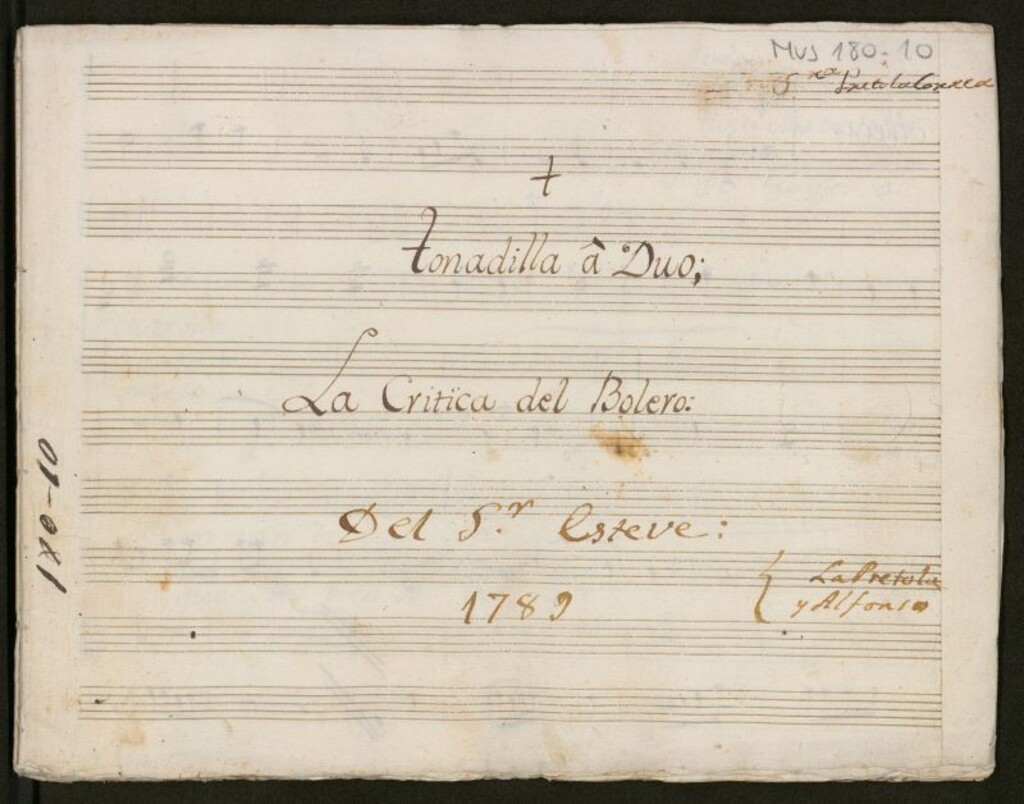 MUS 180-10
S.ra Pretola Correa
+
tonadilla â Duo;
La Critica del Bolero:
Del S.r Esteve:
1789
{ La Pretola
y Alfonso
180-10